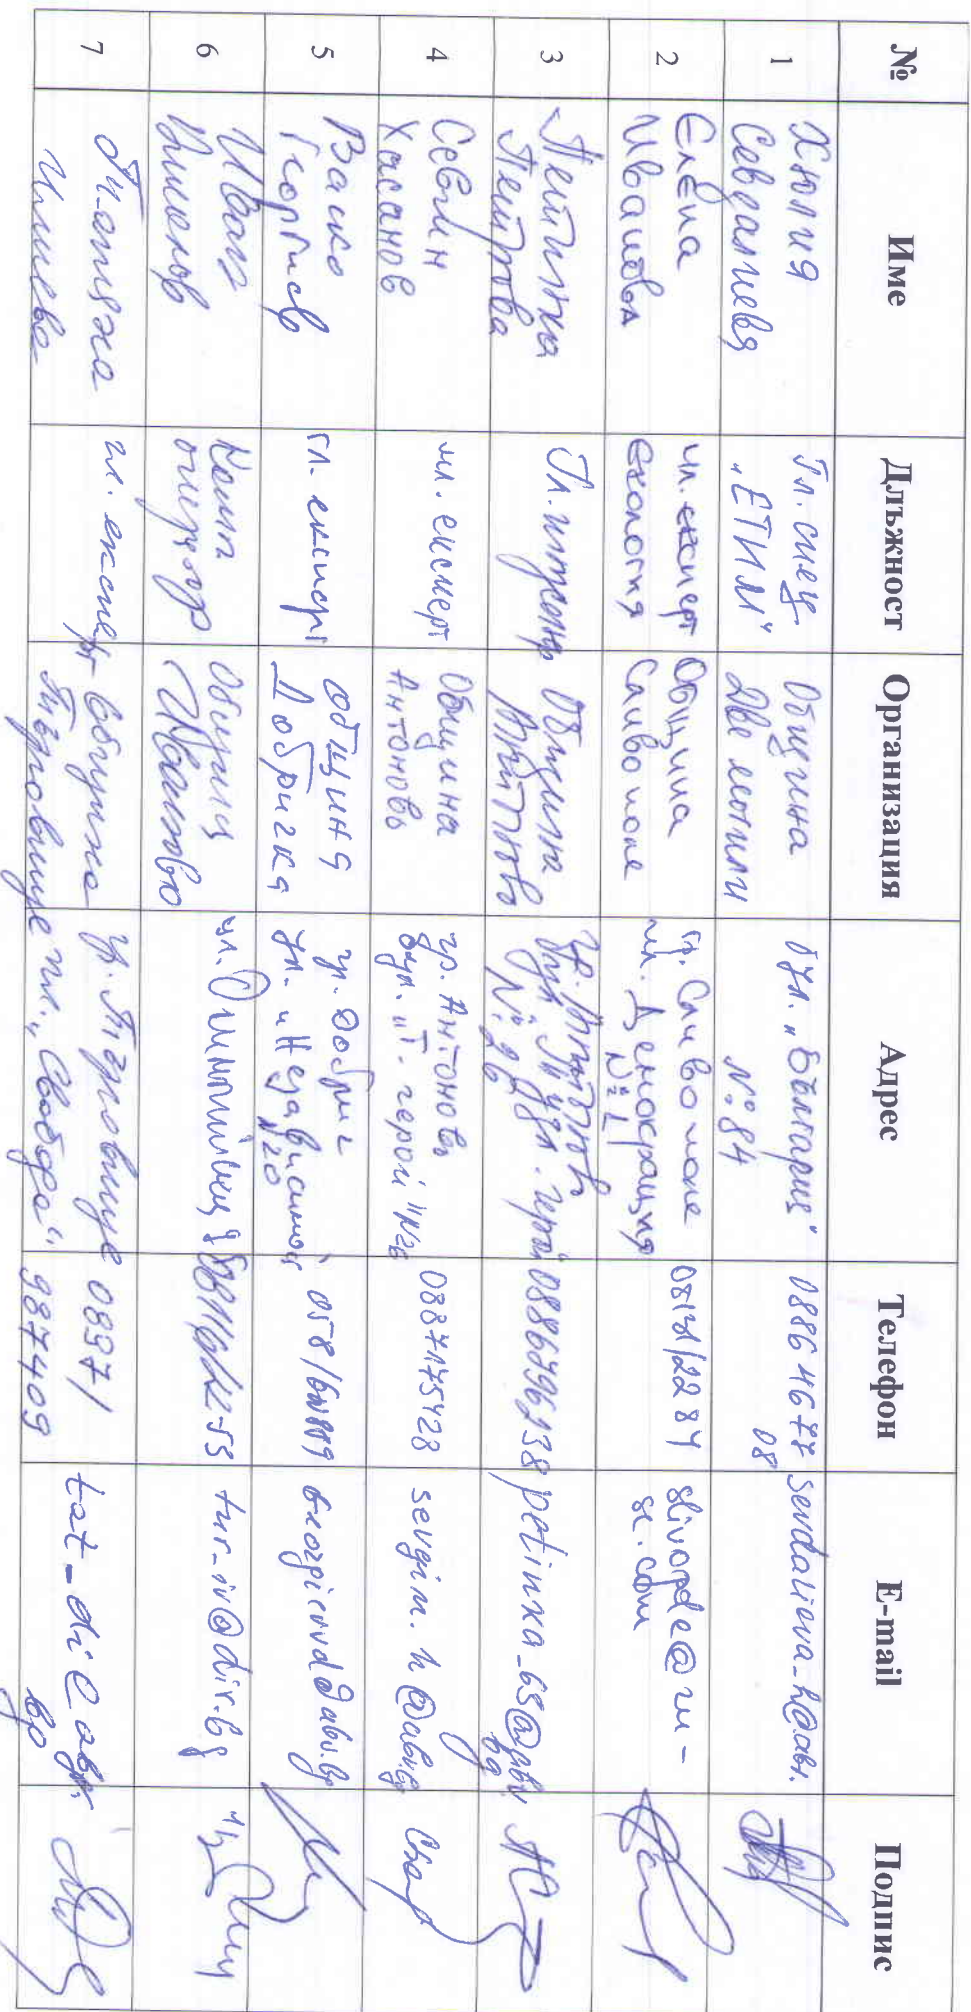 № Име Длъжност Организация Адрес Телефон E-mail Подпис
1 Хюлия Севдалиева Гл. спец. „ЕТИМ“ Община Две могили бул. „България“ №84 0886 4677 08 sevdalieva_h@abv.
2 Елена Иванова мл. експерт екология Община Сливо поле гр. Сливо поле пл. Демокрация №1 08131/22 84 slivopole@ru-se.com
3 Петинка Петрова Община бул. №26 0886796238 petinka_65@abv.bg
4 Севгин Хасанов мл. експерт Община Антоново гр. Антоново бул. „Т. герой“ №26 0887175428 sevgin.h@abv.bg
5 Васко Георгиев гл. експерт община Добричка гр. Добрич ул. „Независимост“ №20 058/ georgievvd@abv.bg
6 Иван Община Иваново ул. Олимпийска tur-iv@dir.bg
7 Татяна Илиева мл. експерт Община Търговище гр. Търговище пл. „Свобода“ 0897/987409 tat-di@abv.bg